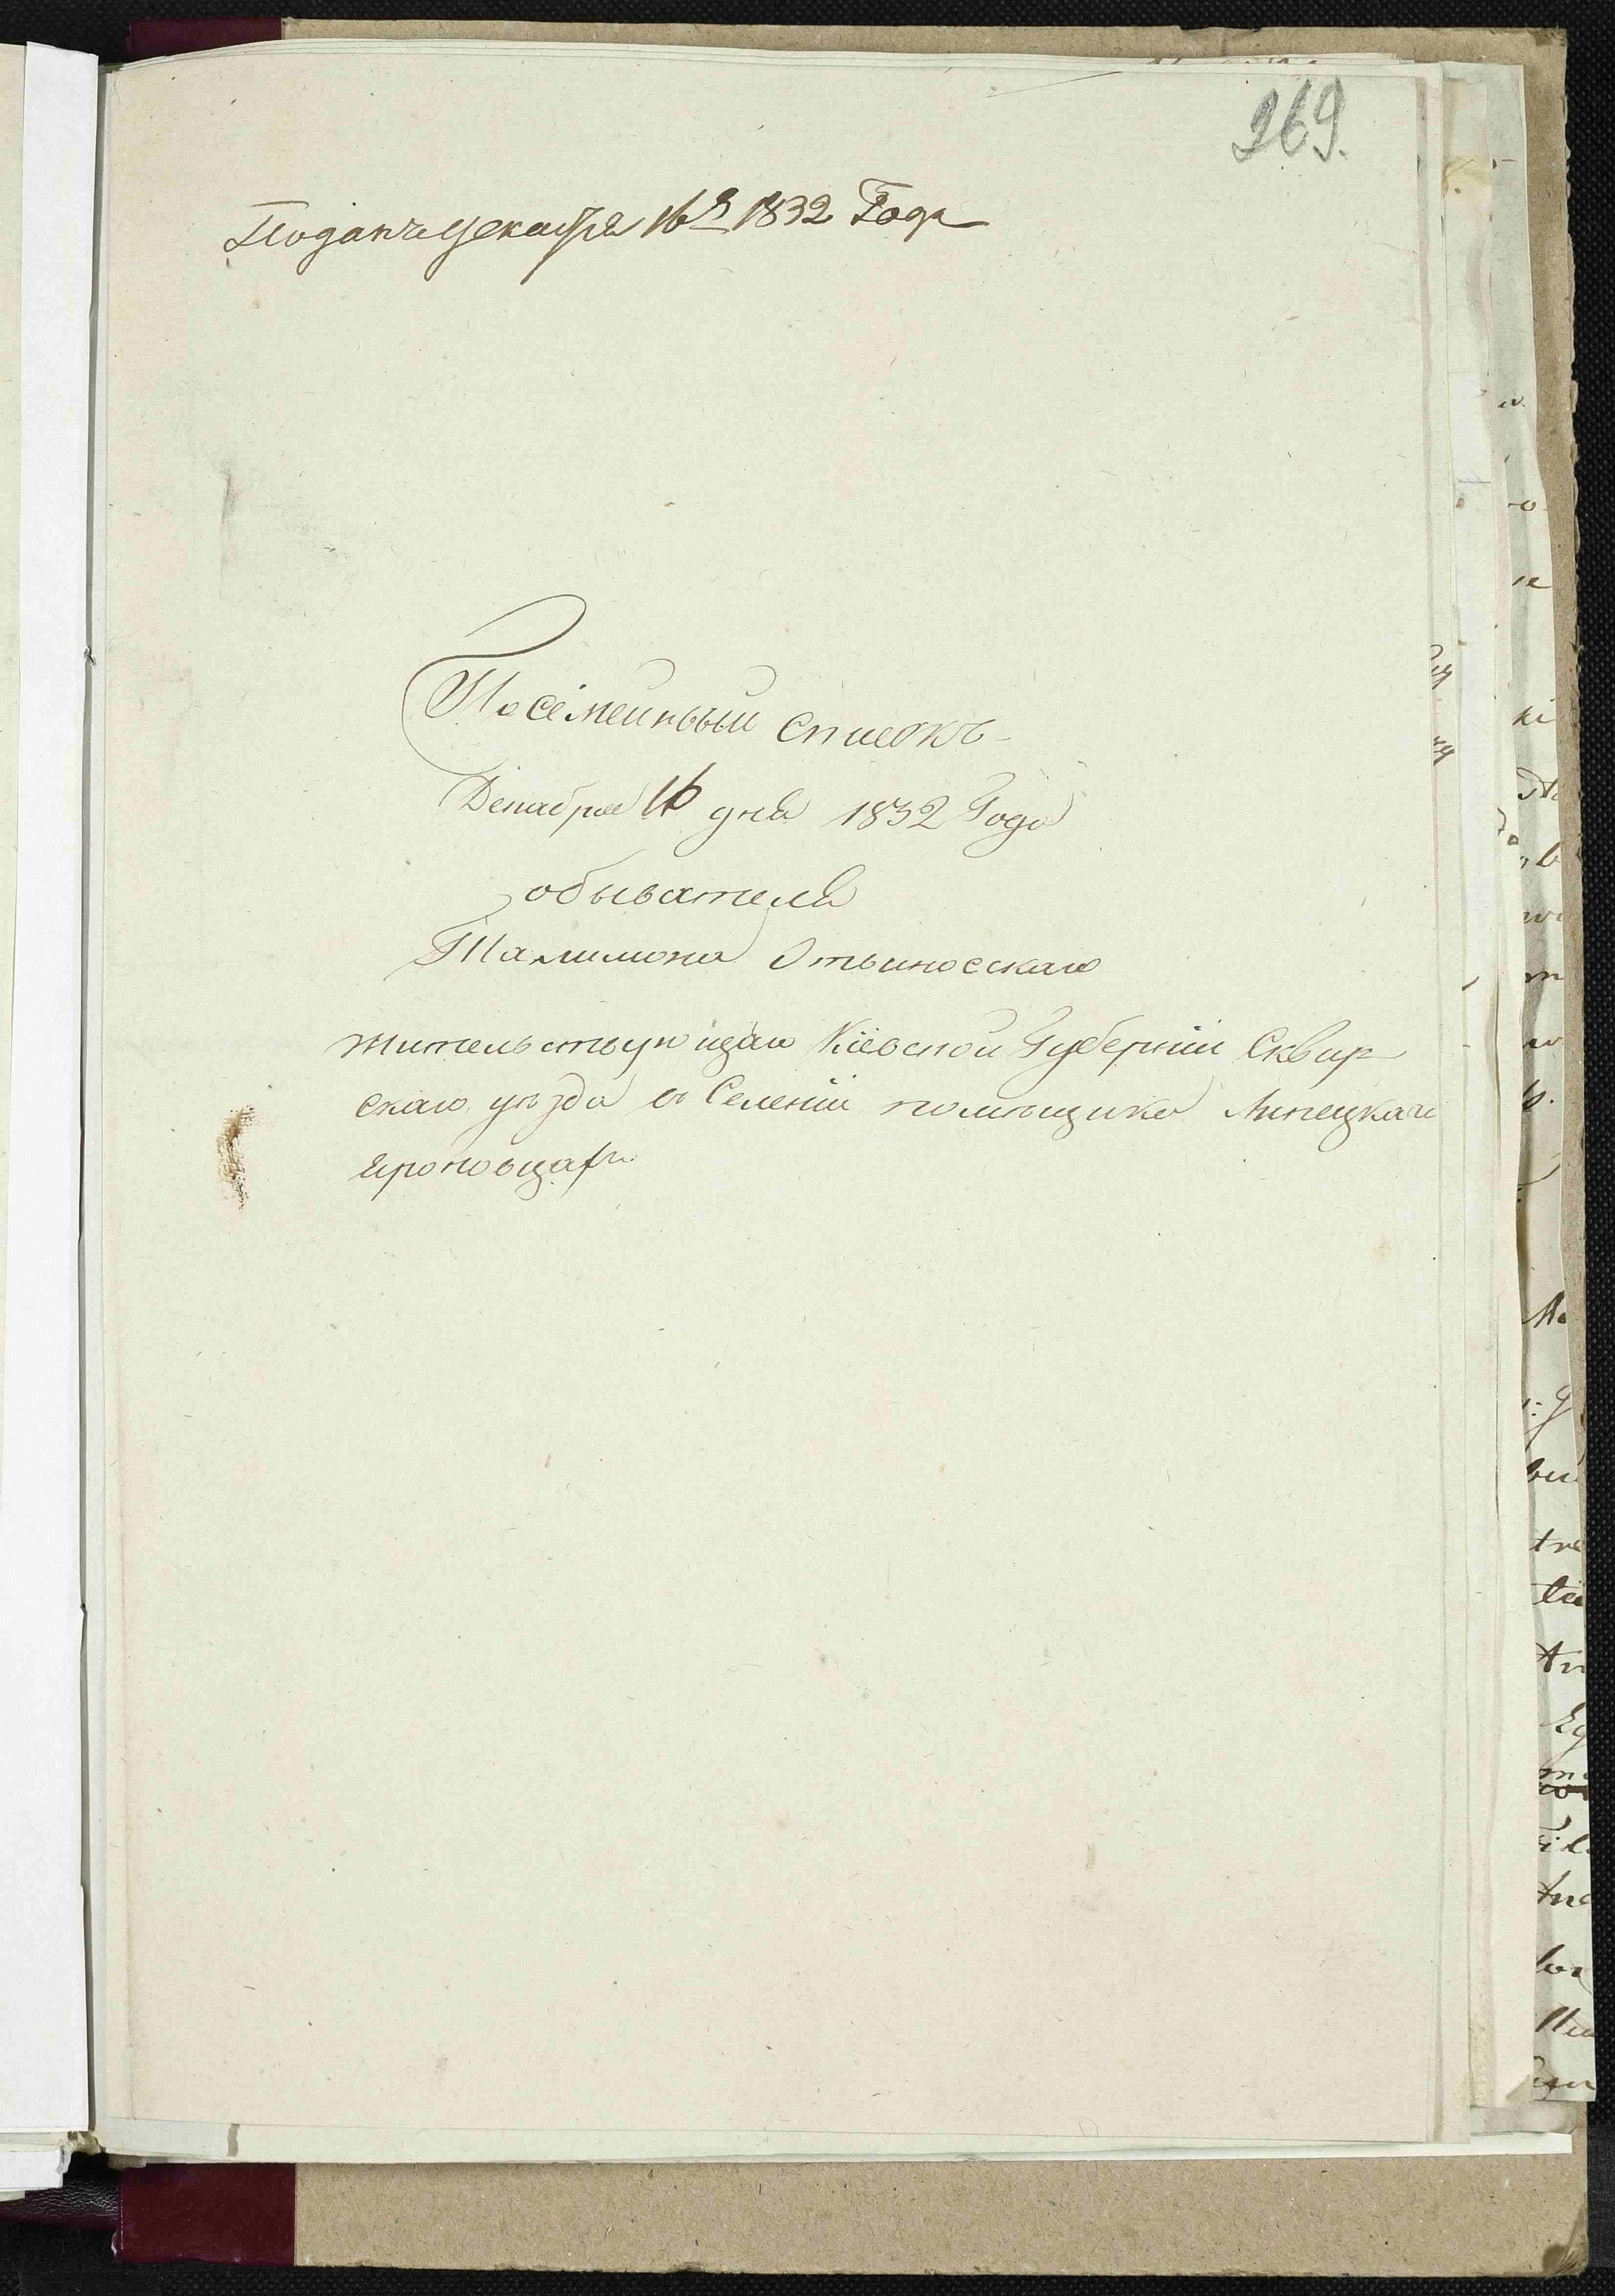 269.
Поданъ Декабря 16го 1832 Года
Посемейный списокъ
Декабря 16 дня 1832 Года
обывателя
Отвиновскаго
жительствующаго Кіевской Губерніи Сквир
скаго уѣзда въ Селеніи помѣщика Липецкаго